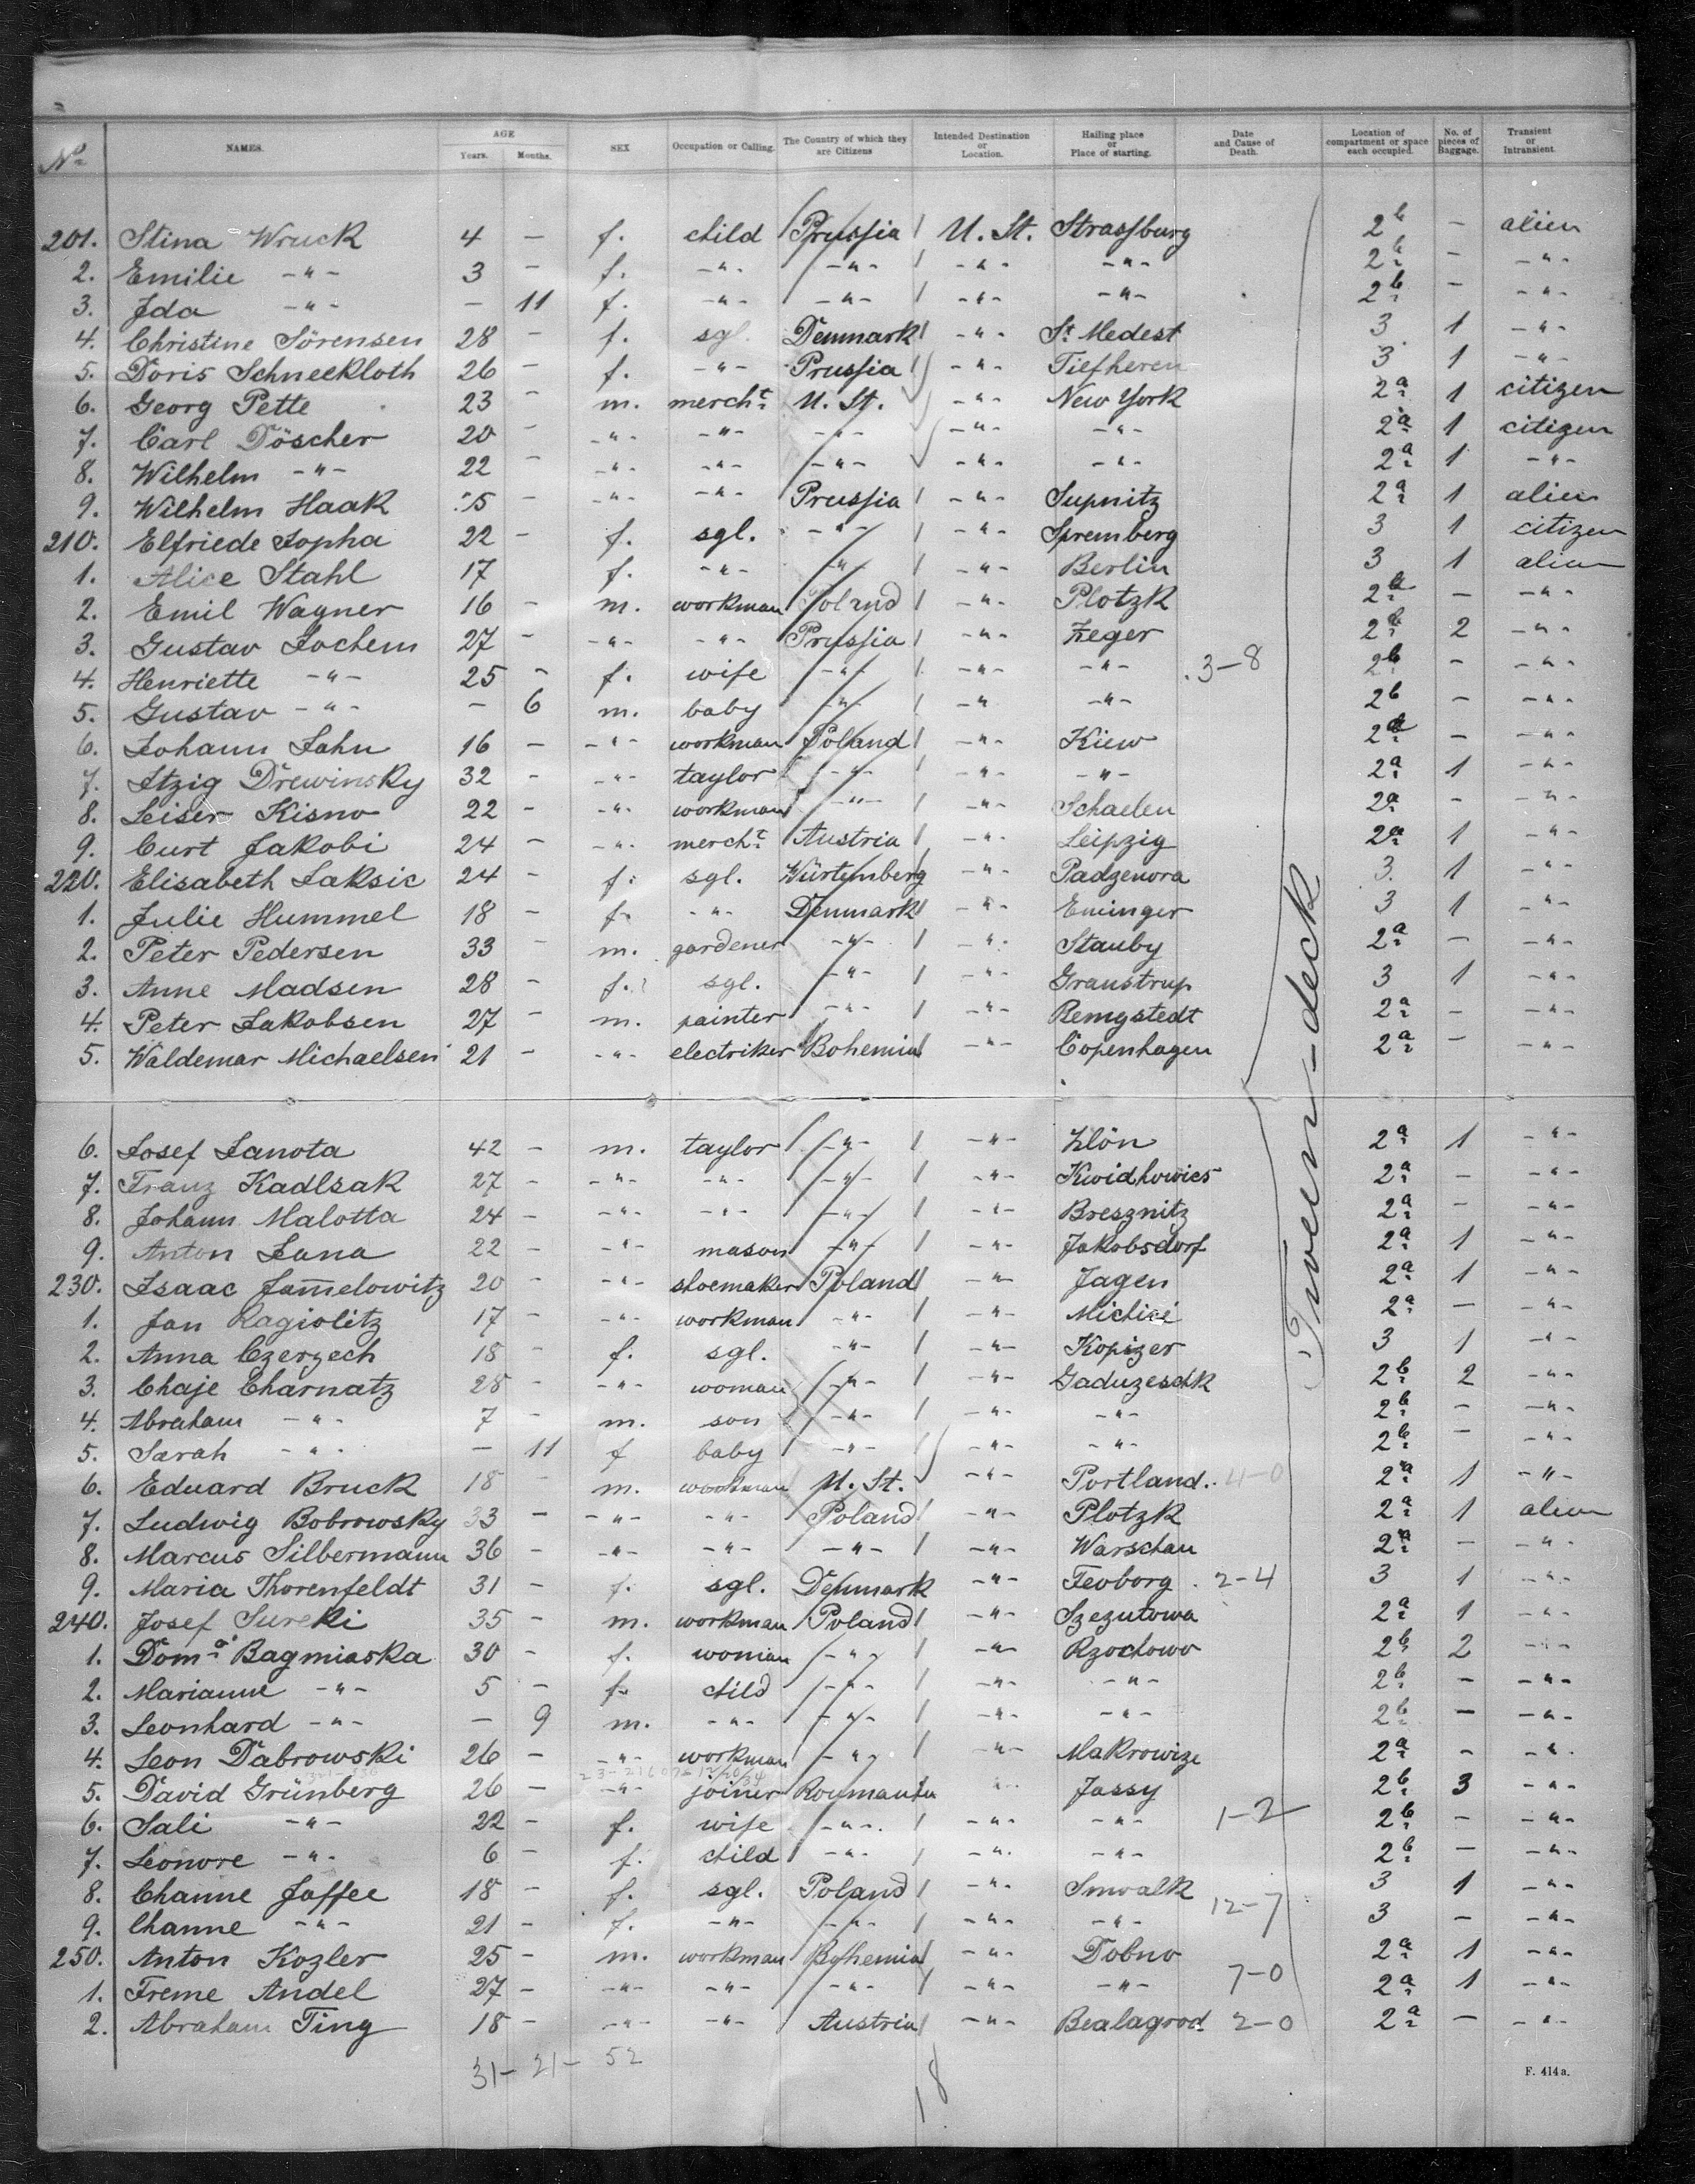 No. NAMES. AGE Years. Months. SEX Occupation or Calling. The Country of which they are Citizens Intended Destination or Location. Hailing place or Place of starting. Date and Cause of Death. Location of compartment or space each occupied. No. of pieces of Baggage. Transient or Intransient.
201. Stina Wruck 4 – f. child Prussia U. St. Strassburg 2b – alien
2. Emilie -"- 3 – f. -"- -"- -"- -"- 2b – -"-
3. Ida -"- – 11 f. -"- -"- -"- -"- 2b – -"-
4. Christine Sörensen 28 – f. sgl. Denmark -"- St. Medest 3 1 -"-
5. Doris Schneekloth 26 – f. -"- Prussia -"- Tiefheren 3 1 -"-
6. Georg Pette 23 – m. mercht. U. St. -"- New York 2a 1 citizen
7. Carl Döscher 20 – -"- -"- -"- -"- -"- 2a 1 citizen
8. Wilhelm -"- 22 – -"- -"- -"- -"- -"- 2a 1 -"-
9. Wilhelm Haak 5 – -"- -"- Prussia -"- Supnitz 2a 1 alien
210. Elfriede Sopha 22 – f. sgl. -"- -"- Spremberg 3 1 citizen
1. Alice Stahl 17 f. -"- -"- -"- Berlin 3 1 alien
2. Emil Wagner 16 – m. workman Poland -"- Plotzk 2a – -"-
3. Gustav Jochem 27 – -"- -"- Prussia -"- Zeger 2b 2 -"-
4. Henriette -"- 25 – f. wife -"- -"- -"- 3-8 2b – -"-
5. Gustav -"- – 6 m. baby -"- -"- -"- 2b – -"-
6. Johann Jahn 16 – -"- workman Poland -"- Kiew 2a – -"-
7. Itzig Drewinsky 32 – -"- taylor -"- -"- -"- 2a 1 -"-
8. Leiser Kisno 22 – -"- workman -"- -"- Schaelen 2a – -"-
9. Curt Jakobi 24 – -"- mercht. Austria -"- Leipzig 2a 1 -"-
220. Elisabeth Jaksic 24 – f. sgl. Würtemberg -"- Padzenora 3 1 -"-
1. Julie Hummel 18 – f. -"- Denmark -"- Eninger 3 1 -"-
2. Peter Pedersen 33 – m. gardener -"- -"- Stauby 2a – -"-
3. Anne Madsen 28 – f. sgl. -"- -"- Granstrup 3 1 -"-
4. Peter Jakobsen 27 – m. painter -"- -"- Remgstedt 2a – -"-
5. Waldemar Michaelsen 21 – -"- electriker Bohemia -"- Copenhagen 2a – -"-
6. Josef Janota 42 – m. taylor -"- -"- Zlön 2a 1 -"-
7. Franz Kadlsak 27 – -"- -"- -"- -"- Kwidhowics 2a – -"-
8. Johann Malotta 24 – -"- -"- -"- -"- Bresznitz 2a – -"-
9. Anton Jana 22 – -"- mason -"- -"- Jakobsdorf 2a 1 -"-
230. Isaac Jam̅elowitz 20 – -"- shoemaker Poland -"- Jagen 2a 1 -"-
1. Jan Ragiolitz 17 – -"- workman -"- -"- Michici 2a – -"-
2. Anna Czerzech 18 – f. sgl. -"- -"- Kopizer 3 1 -"-
3. Chaje Charnatz 28 – -"- woman -"- -"- Gaduzeschk 2b 2 -"-
4. Abraham -"- 7 – m. son -"- -"- -"- 2b – -"-
5. Sarah -"- – 11 f baby -"- -"- -"- 2b – -"-
6. Eduard Bruck 18 – m. workman U. St. -"- Portland. 4-0 2a 1 -"-
7. Ludwig Bobrowsky 33 – -"- -"- Poland -"- Plotzk 2a 1 alien
8. Marcus Silbermann 36 – -"- -"- -"- -"- Warschau 2a – -"-
9. Maria Thorenfeldt 31 – f. sgl. Denmark -"- Fevborg 2-4 3 1 -"-
240. Josef Sureki 35 – m. workman Poland -"- Szezutowa 2a 1 -"-
1. Doma. Bagmiaska 30 – f. woman -"- -"- Rzochowo 2b 2 -"-
2. Marianne -"- 5 – f. child -"- -"- -"- 2b – -"-
3. Leonhard -"- – 9 m. -"- -"- -"- -"- 2b – -"-
4. Leon Dabrowski 26 – -"- workman -"- -"- Makrowize 2a – -"-
5. David Grünberg 26 – -"- joiner Roumania -"- Jassy 2b 3 -"-
6. Sali -"- 22 – f. wife -"- -"- -"- 1-2 2b – -"-
7. Leonore -"- 6 – f. child -"- -"- -"- 2b – -"-
8. Channe Jaffee 18 – f. sgl. Poland -"- Smoalk 12-7 3 1 -"-
9. Channe -"- 21 – f. -"- -"- -"- -"- 3 – -"-
250. Anton Kozler 25 – m. workman Bohemia -"- Dobno 2a 1 -"-
1. Freme Andel 27 – -"- -"- -"- -"- -"- 7-0 2a 1 -"-
2. Abraham Ting 18 – -"- -"- Austria -"- Bealagrod 2-0 2a – -"-
Tween-deck
31- 21- 52
18
F. 414 a.